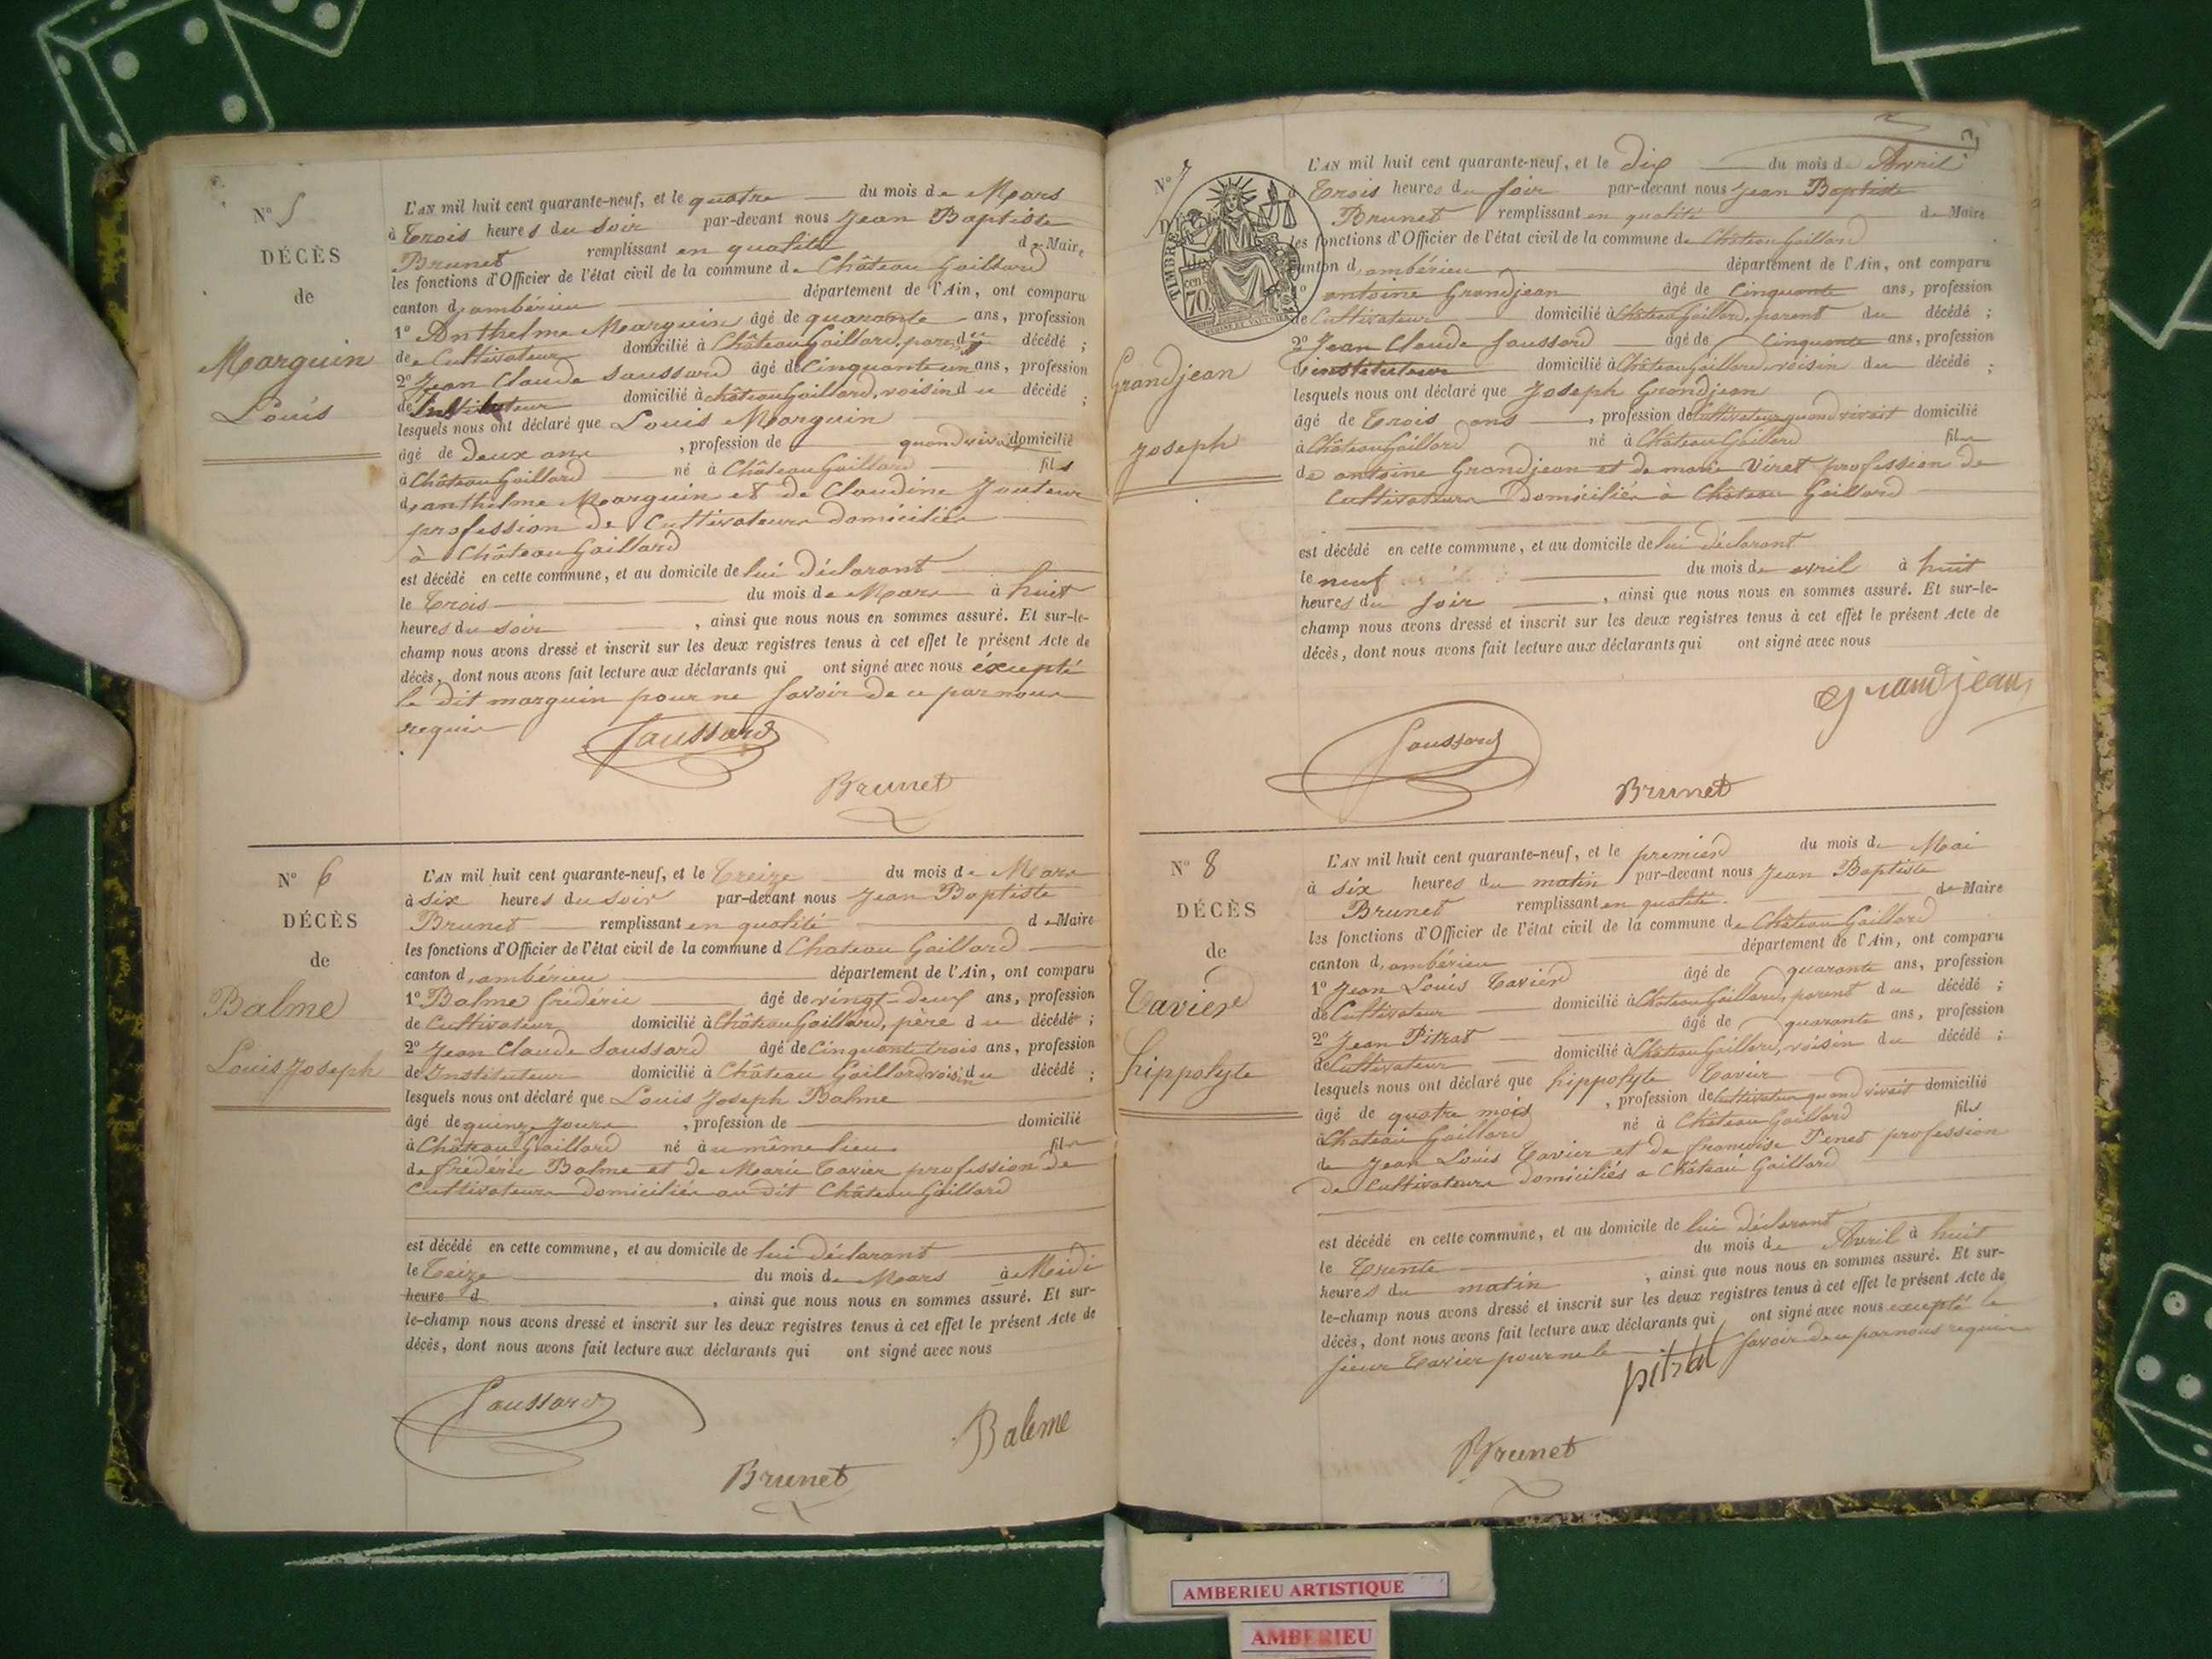 N° 5
DÉCÈS
de
Marguin
Louis
L'AN mil huit cent quarante-neuf, et le quatre du mois de Mars
à Trois heures du soir par-devant nous Jean Baptiste
Brunet remplissant en qualité de Maire
les fonctions d'Officier de l'état civil de la commune de Château Gaillard
canton d'ambérieu département de l'Ain, ont comparu
1° Anthelme Marguin âgé de quarante ans, profession
de Cultivateur domicilié à Château Gaillard, parent du décédé ;
2° Jean Claude Saussard âgé de Cinquante un ans, profession
de Instituteur domicilié à château Gaillard, voisin du décédé ;
lesquels nous ont déclaré que Louis Marguin
âgé de deux ans , profession de quand vivait domicilié
à Château Gaillard né à Château Gaillard fils
d'anthelme Marguin et de Claudine
profession de Cultivateurs domiciliés
à Château Gaillard
est décédé en cette commune, et au domicile de lui déclarant
le Trois du mois de Mars à huit
heures du soir , ainsi que nous nous en sommes assuré. Et sur-le-
champ nous avons dressé et inscrit sur les deux registres tenus à cet effet le présent Acte de
décès, dont nous avons fait lecture aux déclarants qui ont signé avec nous excepté
le dit marguin pour ne savoir de ce par nous
requis
Saussard
Brunet
N° 6
DÉCÈS
de
Balme
Louis Joseph
L'AN mil huit cent quarante-neuf, et le Treize du mois de Mars
à six heures du soir par-devant nous Jean Baptiste
Brunet remplissant en qualité de Maire
les fonctions d'Officier de l'état civil de la commune d Chateau Gaillard
canton d'ambérieu département de l'Ain, ont comparu
1° Balme frédéric âgé de vingt-deux ans, profession
de Cultivateur domicilié à Château Gaillard, père du décédé ;
2° Jean Claude Saussard âgé de Cinquante trois ans, profession
de Instituteur domicilié à Château Gaillard voisin du décédé ;
lesquels nous ont déclaré que Louis Joseph Balme
âgé de quinze Jours , profession de domicilié
à Château Gaillard né au même lieu fils
de frédéric Balme et de Marie Tavier profession de
Cultivateurs domiciliés au dit Château Gaillard
est décédé en cette commune, et au domicile de lui déclarant
le Treize du mois de Mars à Midi
heure d , ainsi que nous nous en sommes assuré. Et sur-
le-champ nous avons dressé et inscrit sur les deux registres tenus à cet effet le présent Acte de
décès, dont nous avons fait lecture aux déclarants qui ont signé avec nous
Saussard
Balme
Brunet
N° 7
TIMBRE
cen 70
Grandjean
Joseph
L'AN mil huit cent quarante-neuf, et le dix du mois de Avril
à Trois heures du soir par-devant nous Jean Baptiste
Brunet remplissant en qualité de Maire
les fonctions d'Officier de l'état civil de la commune de Château Gaillard
canton d'ambérieu département de l'Ain, ont comparu
1° antoine Grandjean âgé de Cinquante ans, profession
de Cultivateur domicilié à Château Gaillard, parent du décédé ;
2° Jean Claude Saussard âgé de Cinquante ans, profession
d'instituteur domicilié à Château Gaillard voisin du décédé ;
lesquels nous ont déclaré que Joseph Grandjean
âgé de Trois ans , profession de Cultivateur quand vivait domicilié
à Château Gaillard né à Château Gaillard fils
de antoine Grandjean et de marie Viret profession de
Cultivateurs Domiciliés à Château Gaillard
est décédé en cette commune, et au domicile de lui déclarant
le neuf du mois de avril à huit
heures du soir , ainsi que nous nous en sommes assuré. Et sur-le-
champ nous avons dressé et inscrit sur les deux registres tenus à cet effet le présent Acte de
décès, dont nous avons fait lecture aux déclarants qui ont signé avec nous
Grandjean
Saussard
Brunet
N° 8
DÉCÈS
de
Tavier
hippolyte
L'AN mil huit cent quarante-neuf, et le premier du mois de Mai
à six heures du matin par-devant nous Jean Baptiste
Brunet remplissant en qualité de Maire
les fonctions d'Officier de l'état civil de la commune de Château Gaillard
canton d'ambérieu département de l'Ain, ont comparu
1° Jean Louis Tavier âgé de quarante ans, profession
de Cultivateur domicilié à Château Gaillard, parent du décédé ;
2° Jean Pitrat âgé de quarante ans, profession
de Cultivateur domicilié à Château Gaillard, voisin du décédé ;
lesquels nous ont déclaré que hippolyte Tavier
âgé de quatre mois , profession de Cultivateur quand vivait domicilié
à Chateau Gaillard né à Château Gaillard fils
de Jean Louis Tavier et de françoise Penet profession
de Cultivateurs domiciliés a Château Gaillard
est décédé en cette commune, et au domicile de lui déclarant
le Trente du mois de Avril à huit
heures du matin , ainsi que nous nous en sommes assuré. Et sur-
le-champ nous avons dressé et inscrit sur les deux registres tenus à cet effet le présent Acte de
décès, dont nous avons fait lecture aux déclarants qui ont signé avec nous excepté le
sieur Tavier pour ne le savoir de ce par nous requis
pitrat
Brunet
AMBERIEU ARTISTIQUE
AMBERIEU